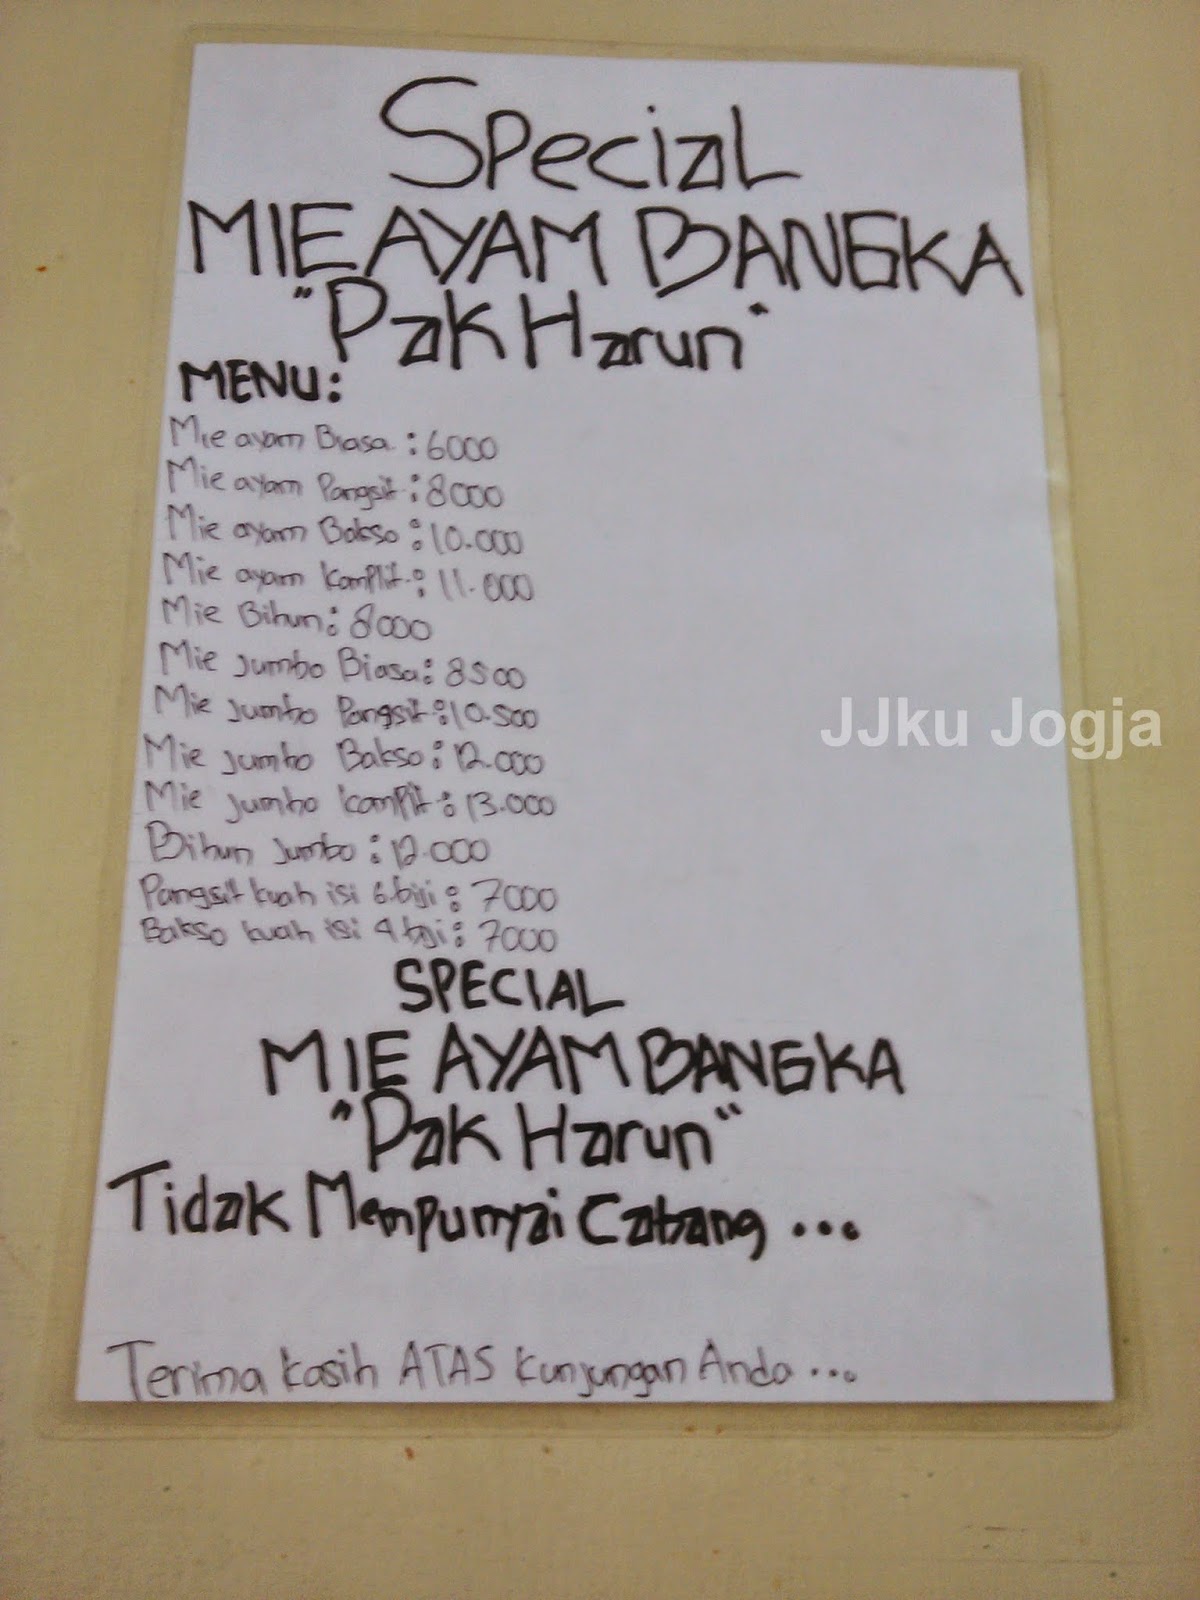 Special
MIE AYAM BANGKA
"Pak Harun"
MENU:
Mie ayam Biasa : 6000
Mie ayam Pangsit : 8000
Mie ayam Bakso : 10.000
Mie ayam Komplit : 11.000
Mie Bihun : 8000
Mie jumbo Biasa : 8500
Mie jumbo Pangsit : 10.500
Mie jumbo Bakso : 12.000
Mie jumbo komplit : 13.000
Bihun jumbo : 12.000
Pangsit kuah isi 6 biji : 7000
Bakso kuah isi 4 biji : 7000
SPECIAL
MIE AYAM BANGKA
"Pak Harun"
Tidak Mempunyai Cabang ...
Terima kasih ATAS kunjungan Anda ...
JJku Jogja